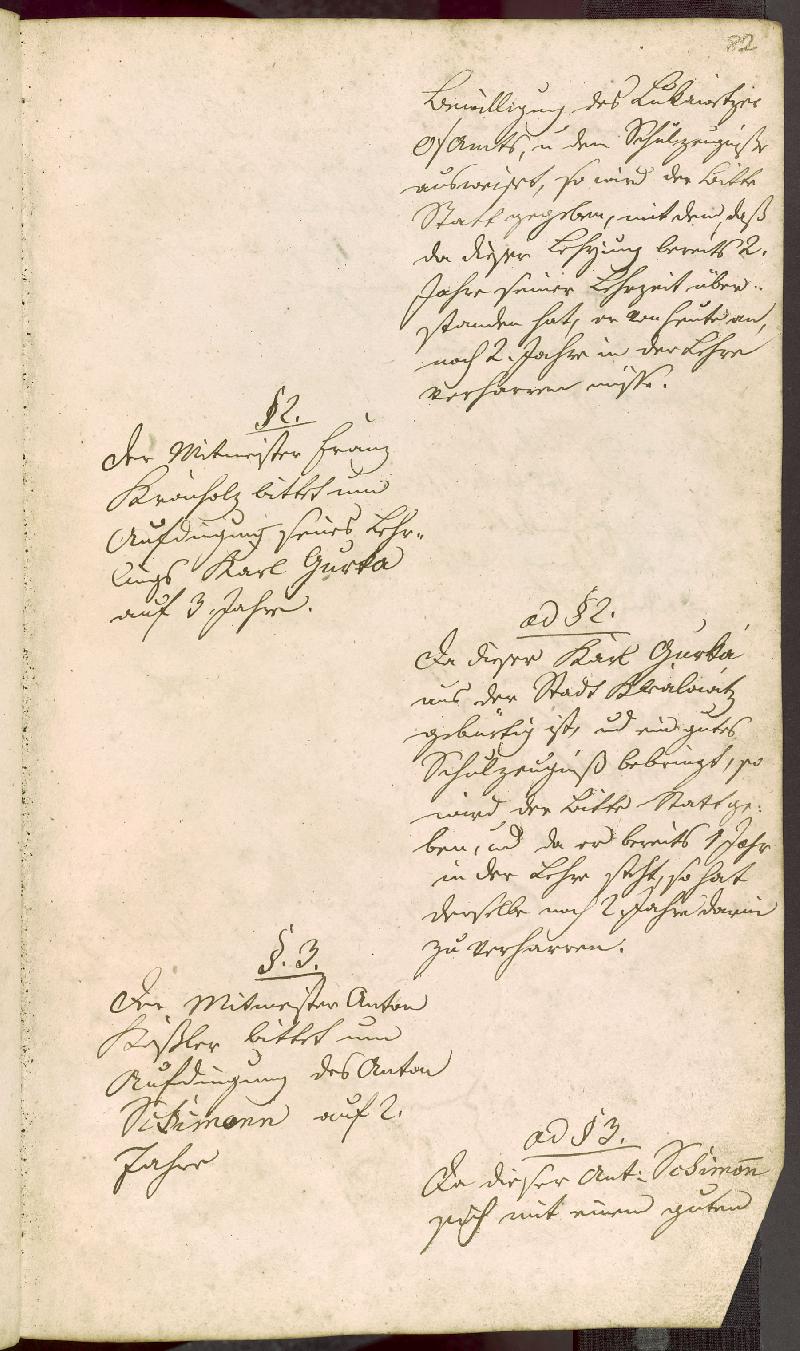 82
Bewilligung des Lukawitzer
O/Amts, u dem Schulzeugniße
ausweiset, so wird der Bitte
Statt gegeben, mit dem, daß
da dieser Lehrjung bereits 2.
Jahre seiner Lehrzeit über-
standen hat, er von heute an,
noch 2. Jahre in der Lehre
verharren müsse.
§ 2.
Der Mitmeister Franz
Kronholz bittet um
Aufdingung seines Lehr-
lings Karl Gurka
auf 3. Jahre.
ad § 2.
Da dieser Karl Gurka
aus der Stadt Kralowitz
gebürtig ist, und ein gutes
Schulzeugniß bebringt, so
wird der Bitte Statt ge-
ben, und da er bereits 1 Jahr
in der Lehre steht, so hat
derselbe noch 2 Jahre darin
zu verharren.
§. 3.
Der Mitmeister Anton
Käßler bittet um
Aufdingung des Anton
Schimonn auf 2.
Jahre
ad § 3.
Da dieser Ant: Schimon̄
sich mit einem guten